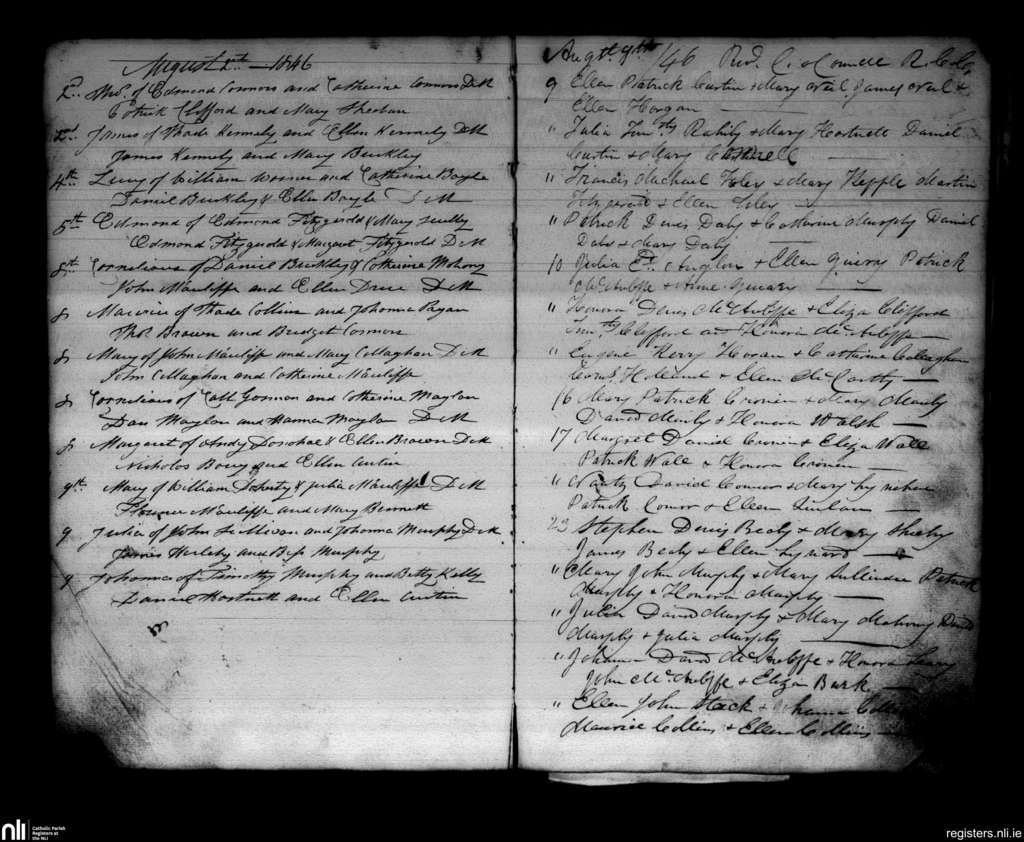 August 2nd 1846
2nd Thos. of Edmond Connors and Catherine Connors DM
Patrick Clifford and Mary Sheehan
2nd James of Thade Kennely and Ellen Kennely DM
James Kennely and Mary Buckley
4th Lucy of William and Catherine Boyle
Daniel Buckley & Ellen Boyle DM
5th Edmond of Edmond Fitzgerold & Mary Scully
Edmond Fitzgerold & Margaret Fitzgerold DM
8th Cornelious of Daniel Buckley & Catherine Mohony
John Mauliffe and Ellen DM
8 Maurice of Thade Collins and Johonna Pagan
Thos Brown and Bridget Connon
8 Mary of John Mauliffe and Mary Callaghan DM
John Callaghan and Catherine Mauliffe
8 Cornelious of Gorman and Catherine Moylan
Dan Moylan and Hanna Moylan DM
8 Margaret of Andy Donohoe & Ellen Brown DM
Nicholas and Ellen Curtin
9th Mary of William Doherty & Julia Mauliffe DM
Florence Mauliffe and Mary Bennett
9 Julia of John Sullivan and Johonna Murphy DM
James Herlehy and Bess Murphy
9 Johonna of Timothy Murphy and Betty Kelly
Daniel Hartnett and Ellen Curtin
Augt. 9th /46 Revd. C. O Connell R.C.C.
9 Ellen Patrick Curtin & Mary Neil James Neil &
Ellen Horgan
" Julia Timthy Rahily & Mary Hartnett Daniel
Curtin & Mary Connell
" Francis Michael Foley & Mary Hepple Martin
Fitzgerald & Ellen Foley
" Patrick Denis Daly & Catherine Murphy Daniel
Daly & Mary Daly
10 Julia Ed. & Ellen Patrick
McAuliffe & Anne
" Honora Denis McAuliffe & Eliza Clifford
Timthy Clifford and Honora McAuliffe
" Eugene Henry Horan & Catherine Callaghan
Corns. Holland & Ellen McCarthy
16 Mary Patrick Cronin & Mary
David & Honora Walsh
17 Margret Daniel Cronin & Eliza Wall
Patrick Wall & Honora Cronin
" David Connor & Mary
Patrick Connor & Ellen Quinlan
23 Stephen Denis Bealy & Mary Sheehy
James Bealy & Ellen Lynard
" Mary John Murphy & Mary Sullivan Patrick
Murphy & Honora Murphy
" Julia David Murphy & Mary Mahony David
Murphy & Julia Murphy
" Johanna David McAuliffe & Honora Leary
John McAuliffe & Eliza Burk
" Ellen John Stack & Johanna Collins
Maurice Collins & Ellen Collins
nli
Catholic Parish
Registers at
the NLI
registers.nli.ie